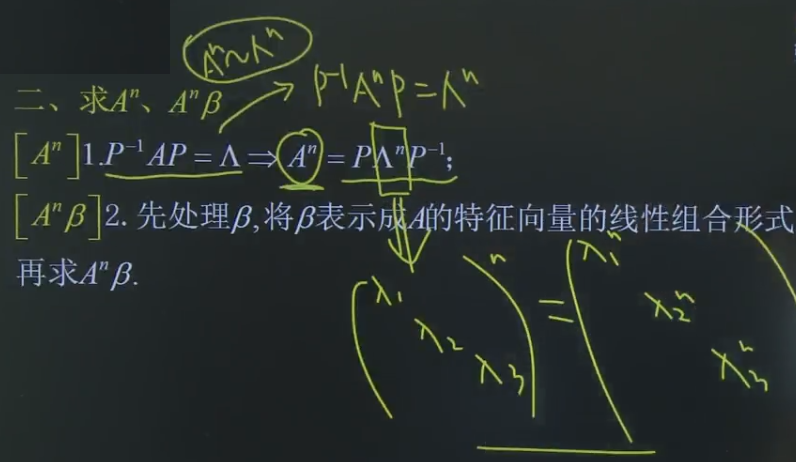 Aⁿ~Λⁿ
二、求Aⁿ、Aⁿβ
P⁻¹AⁿP=Λⁿ
[Aⁿ]1.P⁻¹AP=Λ⇒Aⁿ=PΛⁿP⁻¹;
[Aⁿβ]2. 先处理β,将β表示成A的特征向量的线性组合形式
再求Aⁿβ.
(λ₁ λ₂ λ₃)ⁿ=(λ₁ⁿ λ₂ⁿ λ₃ⁿ